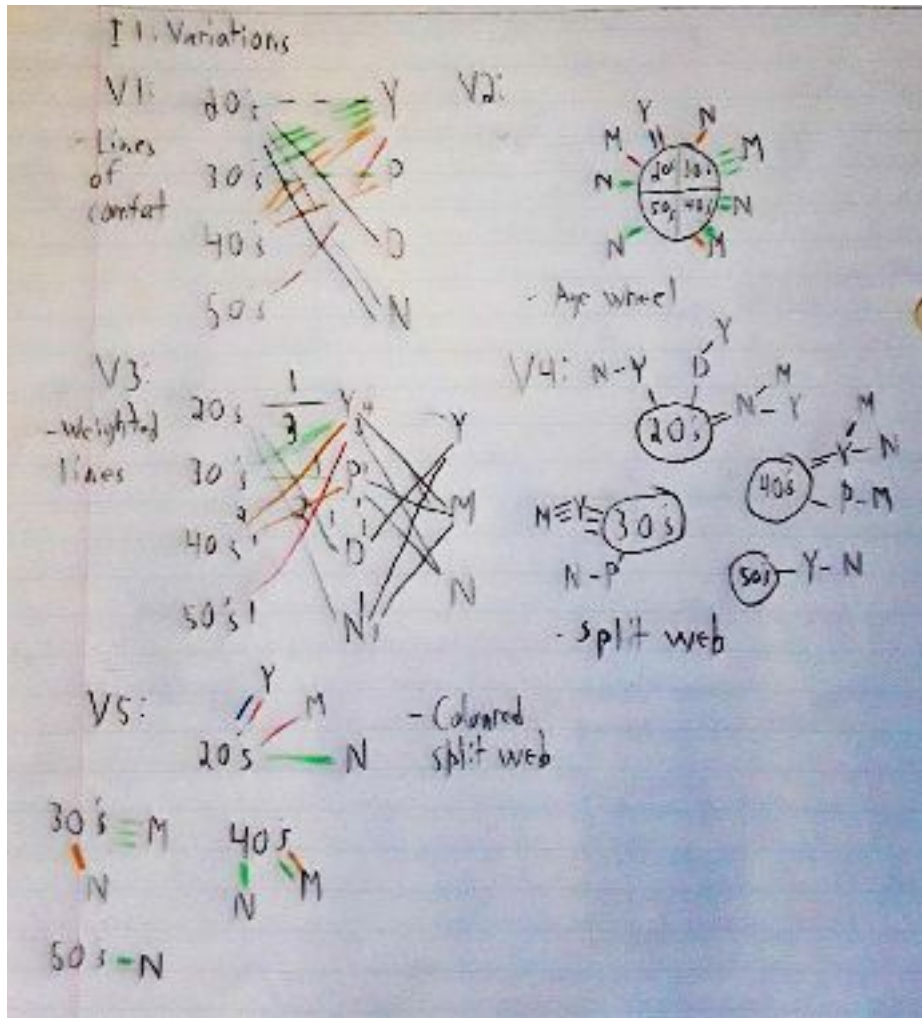 I 1: Variations
V1:
- Lines
of
contact
20's
30's
40's
50s
Y
P
D
N
V2:
Y
N
M
M
N
20s
30s
50s
40s
N
N
M
- Age wheel
V3:
- Weighted
lines
20s
30's
40s'
50's'
1
3
Y
P
D
N
Y
M
N
V4:
N-Y
Y
D
20's
N-Y
M
M Y 30's
N-P
40's
Y-N
M
P-M
50s - Y-N
- split web
V5:
Y
M
20s
N
- Coloured
split web
30's M
N
40s
N
M
50s - N